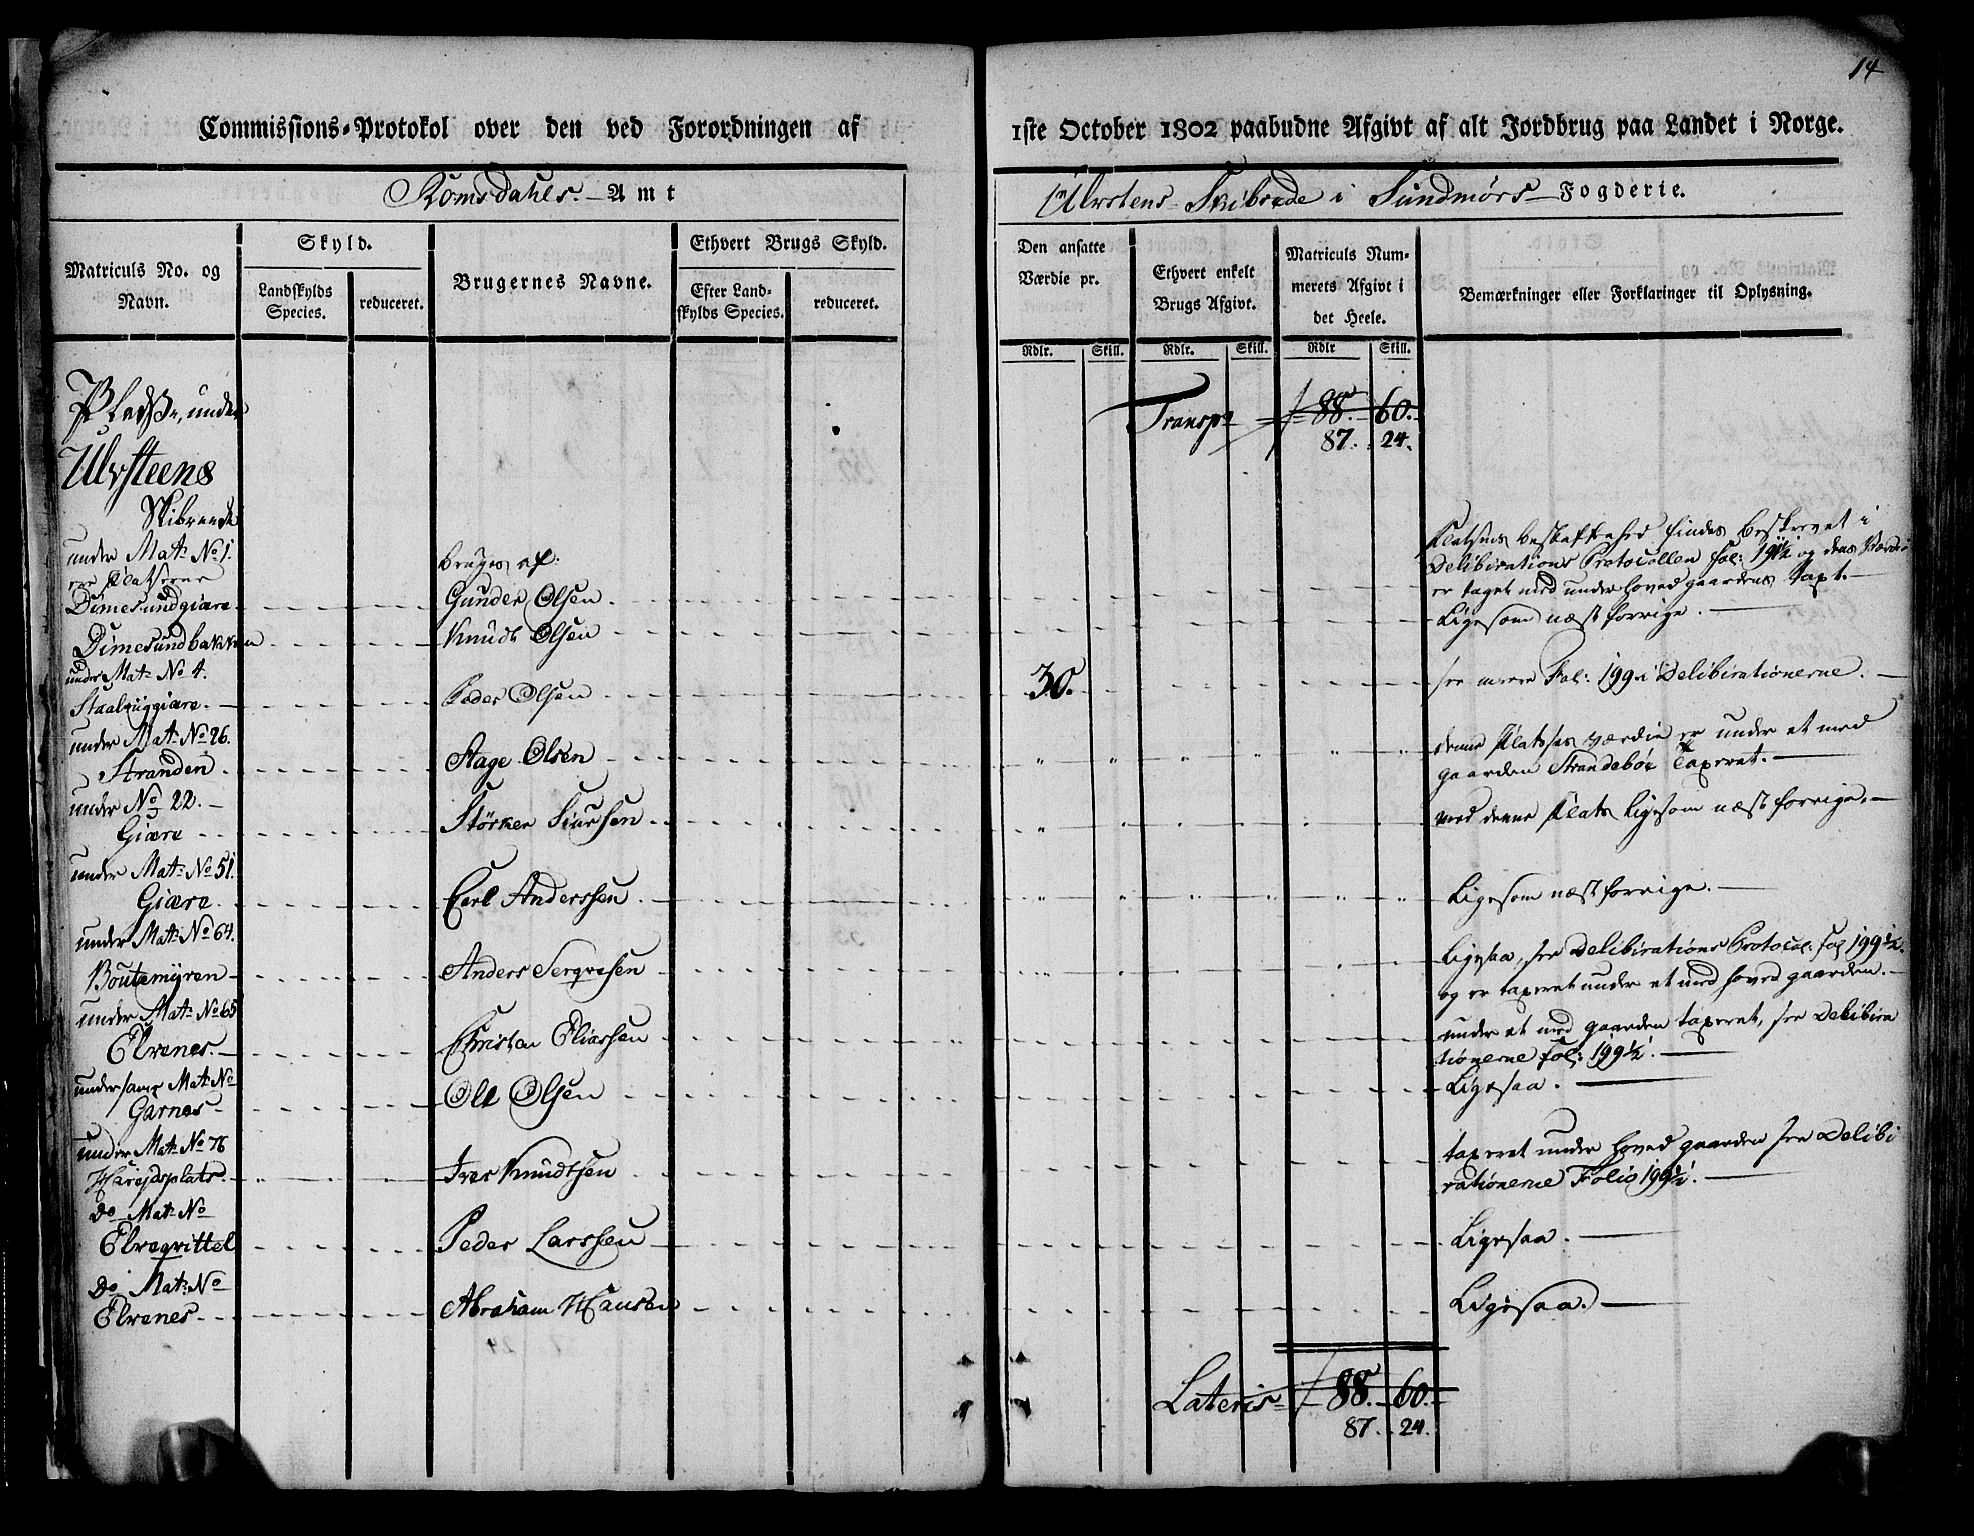 14
Commissions-Protokol over den ved Forordningen af 1ste October 1802 paabudne Afgivt af alt Jordbrug paa Landet i Norge.
Romsdahls Amt
Ulvstens Skibrede i Sundmørs Fogderie.
Matriculs No. og Navn.
Skyld.
Landskylds Species.
reduceret.
Brugernes Navne.
Ethvert Brugs Skyld.
Efter Landskylds Species.
reduceret.
Den ansatte Værdie pr.
Ethvert enkelt Brugs Afgivt.
Matriculs Nummerets Afgivt i det Heele.
Bemærkninger eller Forklaringer til Oplysning.
Rdlr. Skill. Rdlr. Skill. Rdlr Skill.
Pladse, under
Ulvsteens
Skibreede
Transpt 88. 60.
87. 24.
under Mat: No 1.
er Platserne
bruges af:
Dimesundgiære Gunder Olsen
Pladsens beskaffenhed findes beskrevet i
Delibirations Protocollen Fol: 199½ og dens Værdi
er taget med under hoved gaardens taxt.
Dimesundbakken Knudt Olsen Ligesom næst forrige.
under Mat: No 4.
Staalryggiære. Peder Olsen 30. see mere Fol: 199 i Delibirationerne.
under Mat: No 26.
Stranden Stage Olsen
denne Platses værdie er under et med
gaarden Strandebøe Taxeret.
under No 22.
Giære Størker Siursen med denne Plats ligesom næst forrige.
under Mat: No 51.
Giære Carl Anderssen Ligesom næst forrige.
under Mat: No 64.
Boutemyren Anders Sergvesen
ligesaa, see Delibirations Protocol: Fol 199½.
og er taxeret under et med hoved gaarden.
under Mat: No 65
Elvenes. Christen Eliassen
under et med gaarden taxeret, see Delibira
tionerne Fol: 199½.
under samme Mat: No
Garnes Ole Olsen Ligesaa.
under Mat: No 76
Hareidsplats. Iver Knudtsen
taxeret under hoved gaarden see Delibi
rationerne Folio 199½.
Do Mat: No
Elvegrittel Peder Larssen Ligesaa.
Do Mat: No
Elvenes Abraham Hansen Ligesaa.
Lateris 88. 60.
87. 24.